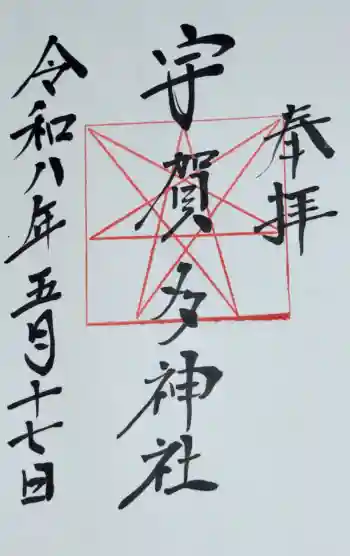 奉拝
宇賀多神社
令和八年五月十七日